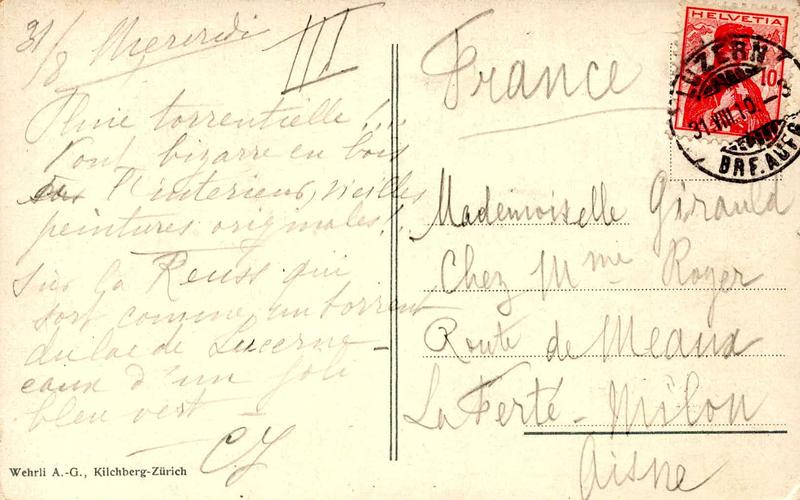 31/8 Mercredi III
Pluie torrentielle!...
Pont bizarre en bois
l'intérieur, vieilles
peintures originales!.
Sur la Reuss qui
sort comme un torrent
du lac de Lucerne -
eaux d'un joli
bleu vert -
CJ
Wehrli A.-G., Kilchberg-Zürich
France
HELVETIA
10
LUZERN
31.VIII.10.-8
BRF. AUFG
Mademoiselle Girauld
Chez Mme Royer
Route de Meaux
La Ferté-Milon
Aisne